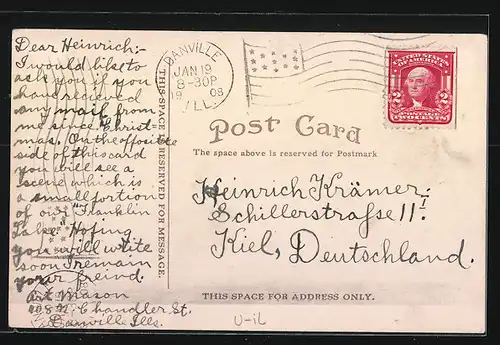 Dear Heinrich:-
I would like to
ask you if you
have received
any mail from
me since Christ-
mas. On the opposite
side of this card
you will see a
scene which is
a small portion
of our Franklin
Lake. Hoping
you will write
soon I remain
your freind.
Art Mason
Chandler St.
Danville Ills.
THIS SPACE RESERVED FOR MESSAGE.
DANVILLE
JAN 19
8-30P
19 08
ILL.
UNITED STATES
OF AMERICA
2 2
POSTAGE
TWO CENTS
Post Card
The space above is reserved for Postmark.
Heinrich Krämer.
Schillerstraße 11. I
Kiel, Deutschland.
THIS SPACE FOR ADDRESS ONLY.
U-iL